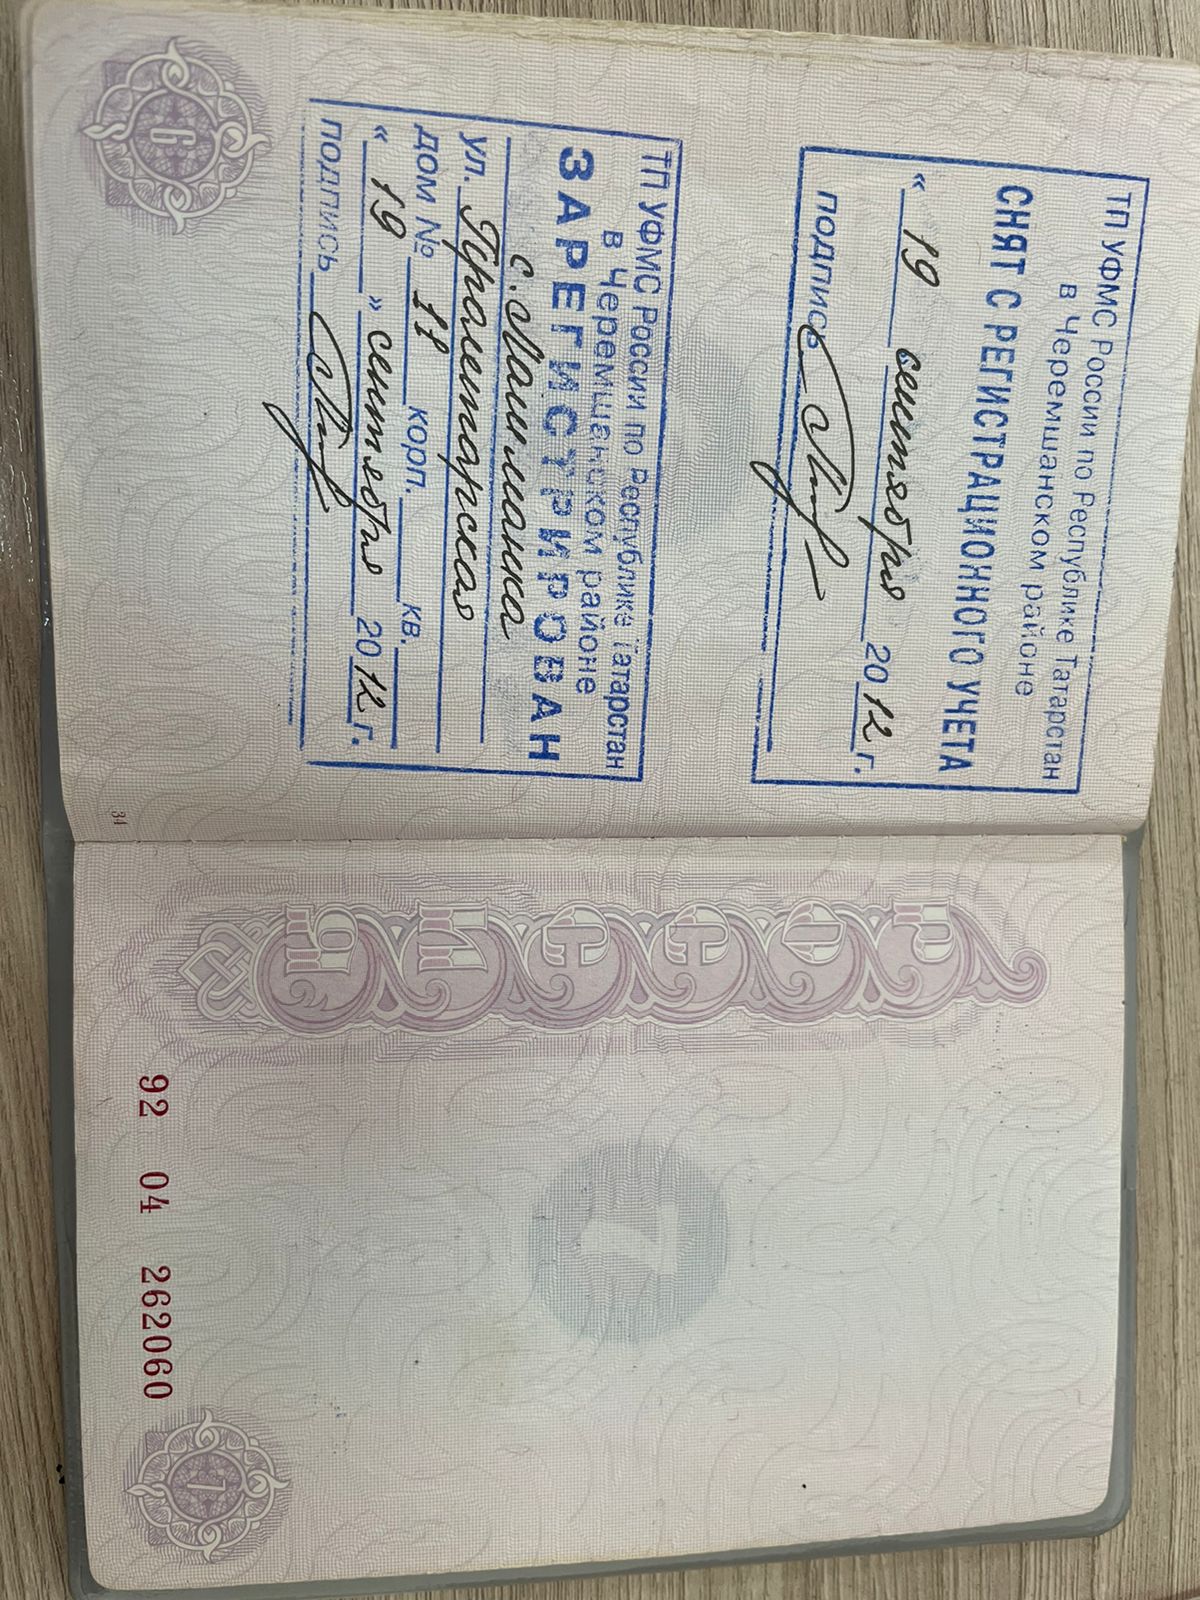 ТП УФМС России по Республике Татарстан
в Черемшанском районе
СНЯТ С РЕГИСТРАЦИОННОГО УЧЕТА
« 19 сентября 2012 г.
подпись
ТП УФМС России по Республике Татарстан
в Черемшанском районе
ЗАРЕГИСТРИРОВАН
с. Лашманка
ул. Пролетарская
дом № 11 корп. кв.
« 19 » сентября 2012 г.
подпись
6
34
РОССИЯ
7
92 04 262060
7